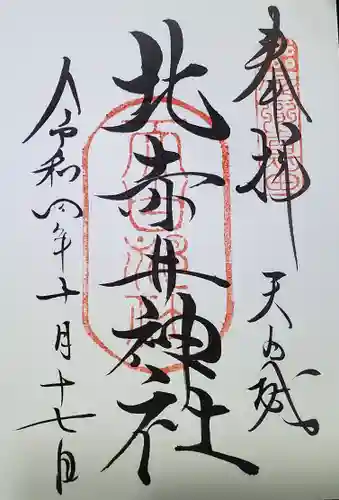 奉拝
天の城
北赤井神社
令和四年十月十七日